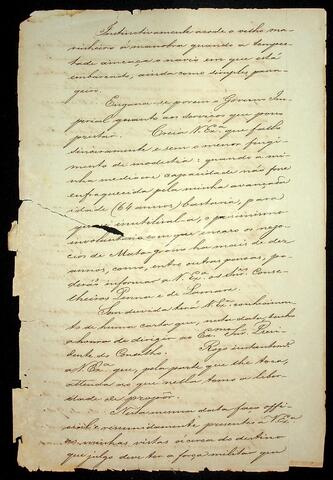 Instinctivamente acode o velho ma-
rinheiro á manobra quando a tempes-
tade ameaça o navio em que está
embarcado, ainda como simples passa-
geiro.
Engana-se porem o Governo Im-
perial quanto aos serviços que posso
prestar. Creia V. Exa. que fallo
sinceramente e sem o menor fingi-
mento de modestia: quando a mi-
nha mediocre capacidade não fora
enfraquecida pela minha avançada
idade (64 annos) bastaria, para
inutilisal-a, o pessimismo
involuntario com que encaro os nego-
cios de Mato-grosso ha mais de dez
annos, como, entre outras pessoas, po-
derão informar a V. Exa. os Snrs. Conse-
lheiros Penna e de Lamare.
Sem duvida terá V. Exa. conhecimen-
to de huma carta que, nesta data, tenho
a honra de dirigir ao Exmo. Snr. Presi-
dente do Conselho. Rogo instantemte.
a V. Exa. que, pela parte que lhe toca,
attenda ao que nella tomo a liber-
dade de propor.
Nesta mesma data faço offi-
cial e resumidamente presentes a V. Exa.
as minhas vistas ácerca do destino
que julgo deve ter a força militar que